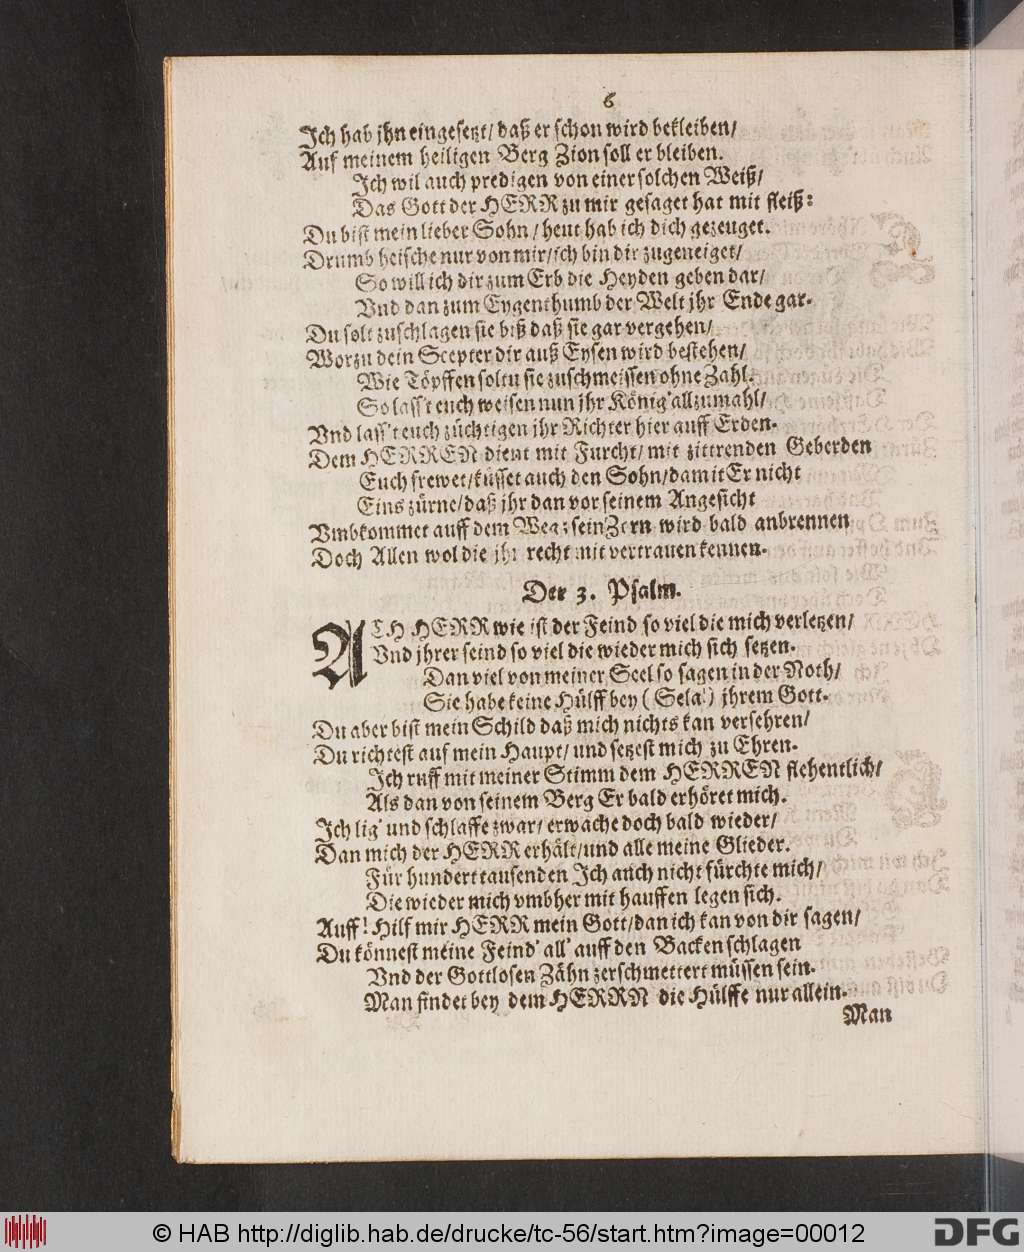 6
Ich hab jhn eingesetzt/ daß er schon wird bekleiben/
Auf meinem heiligen Berg Zion soll er bleiben.
Ich wil auch predigen von einer solchen Weiß/
Das Gott der HERR zu mir gesaget hat mit fleiß:
Du bist mein lieber Sohn / heut hab ich dich gezeuget.
Drumb heische nur von mir/ ich bin dir zugeneiget/
So will ich dir zum Erb die Heyden geben dar/
Vnd dan zum Eygenthumb der Welt jhr Ende gar.
Du solt zuschlagen sie biß daß sie gar vergehen/
Worzu dein Scepter dir auß Eysen wird bestehen/
Wie Töpffen soltu sie zuschmeissen ohne Zahl.
So lass't euch weisen nun jhr König' allzumahl/
Vnd lass't euch züchtigen jhr Richter hier auff Erden.
Dem HERREN dient mit Furcht/ mit zittrenden Geberden
Euch frewet/ küsset auch den Sohn/ damit Er nicht
Eins zürne/ daß jhr dan vor seinem Angesicht
Vmbkommet auff dem Weg: sein Zorn wird bald anbrennen
Doch Allen wol die jhn recht mit vertrauen kennen.
Der 3. Psalm.
ACH HERR wie ist der Feind so viel die mich verletzen/
Vnd jhrer seind so viel die wieder mich sich setzen.
Dan viel von meiner Seel so sagen in der Noth/
Sie habe keine Hülff bey ( Sela!) jhrem Gott.
Du aber bist mein Schild daß mich nichts kan versehren/
Du richtest auf mein Haupt/ und setzest mich zu Ehren.
Ich ruff mit meiner Stimm dem HERREN flehentlich/
Als dan von seinem Berg Er bald erhöret mich.
Ich lig' und schlaffe zwar/ erwache doch bald wieder/
Dan mich der HERR erhält/ und alle meine Glieder.
Für hundert tausenden Ich auch nicht fürchte mich/
Die wieder mich vmbher mit hauffen legen sich.
Auff! Hilf mir HERR mein Gott/ dan ich kan von dir sagen/
Du könnest meine Feind' all' auff den Backen schlagen
Vnd der Gottlosen Zähn zerschmettert müssen sein.
Man findet bey dem HERRN die Hülffe nur allein.
Man
© HAB http://diglib.hab.de/drucke/tc-56/start.htm?image=00012
DFG